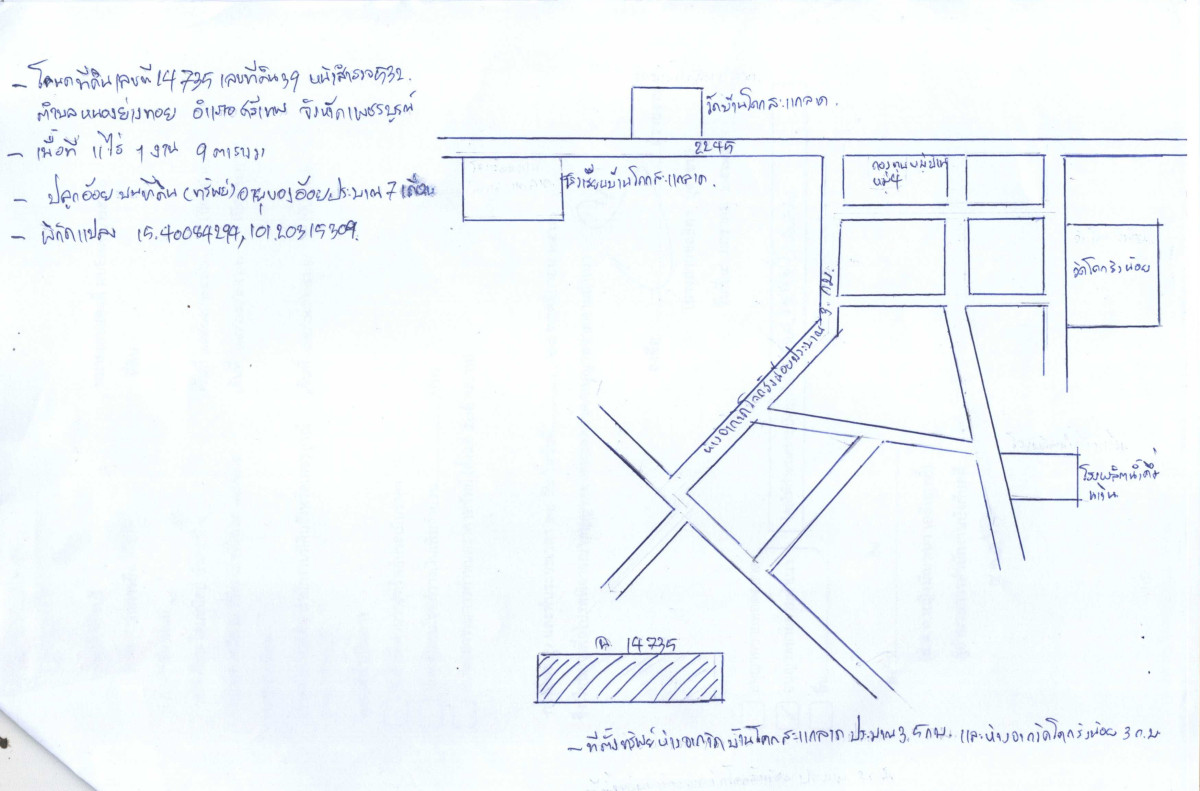 - โฉนดที่ดินเลขที่ 14735 เลขที่ดิน 39 หน้าสำรวจ 532.
ตำบลหนองย่างทอย อำเภอศรีเทพ จังหวัดเพชรบูรณ์
- เนื้อที่ 11 ไร่ 1 งาน 9 ตารางวา
- ปลูกอ้อยบนที่ดิน (ทรัพย์) อายุของอ้อยประมาณ 7 เดือน
- พิกัดแปลง 15.40084294, 101.20315309.
วัดบ้านโคกสะแกลาด.
2245
โรงเรียนบ้านโคกสะแกลาด.
กองทุนหมู่บ้าน
หมู่ 4
วัดโคกรังน้อย
ห่างจากวัดโคกรังน้อยประมาณ 3. กม.
โรงผลิตน้ำดื่ม
14735
- ที่ตั้งทรัพย์ห่างจากวัดบ้านโคกสะแกลาด ประมาณ 3.5 กม. และห่างจากวัดโคกรังน้อย 3 ก.ม